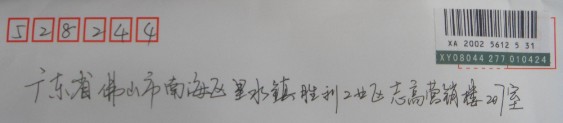 528244
XA 2002 5612 5 31
XY08044 277 010424
广东省佛山市南海区里水镇胜利工业区志高营销楼207室